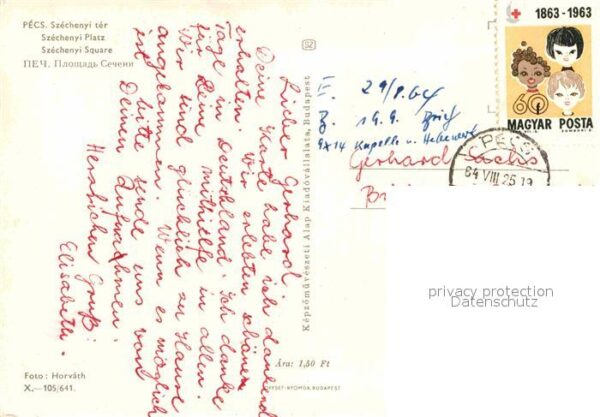 PÉCS. Széchenyi tér
Széchenyi Platz
Széchenyi Square
ПЕЧ. Площадь Сечени
Lieber Gerhard!
Deine Karte habe ich dankend
erhalten. Wir erlebten schöne
Tage in Deutschland. Ich danke
für Deine Mithilfe in allen.
Wir sind glücklich zu Hause
angekommen. Wenn es möglich
ist, bitte sende uns von
Deinen Aufnahmen.
Herzlichen Gruß:
Elisabeth.
Foto: Horváth
X.—105/641.
Képzőművészeti Alap Kiadóvállalata, Budapest
Ára: 1,50 Ft
OFFSET-NYOMDA, BUDAPEST
E. 29/8.64
B. 19.9. Brief
9x14 Kapelle v.
Gerhard Sachs
1863-1963
60
MAGYAR POSTA
PÉCS
64 VIII 25 19
privacy protection
Datenschutz